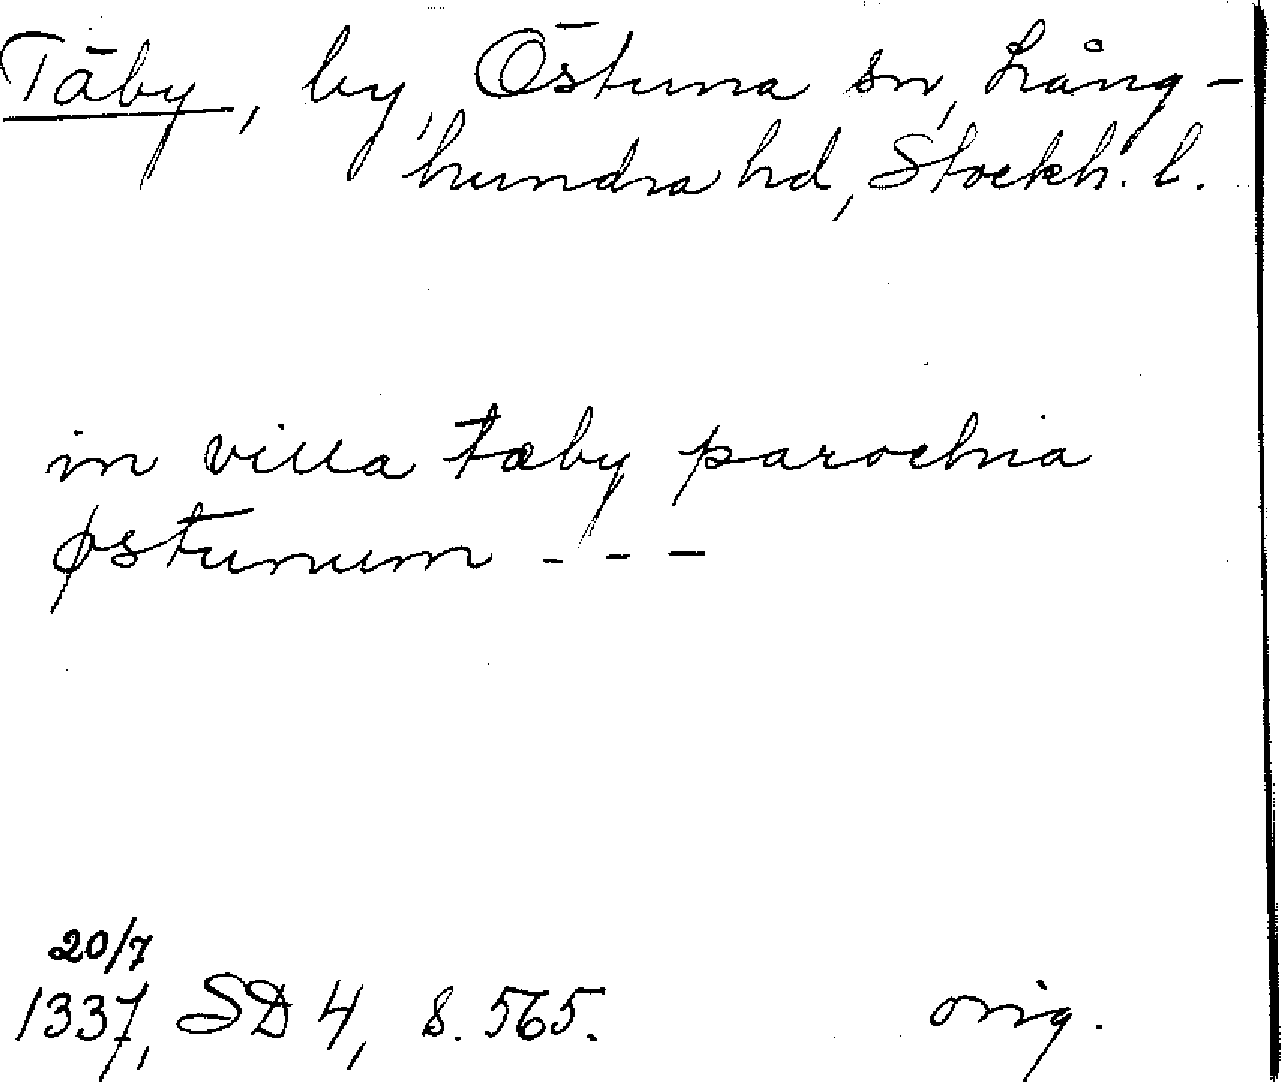 Täby, by, Östuna sn, Lång-
hundra hd, Stockh. l.
in villa tæby parochia
østunum - - -
20/7
1337, SD 4, s. 565. orig.